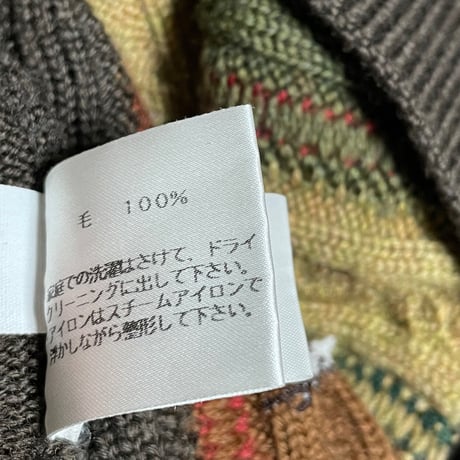 毛 100%
家庭での洗濯はさけて、ドライ
クリーニングに出して下さい。
アイロンはスチームアイロンで
浮かしながら整形して下さい。